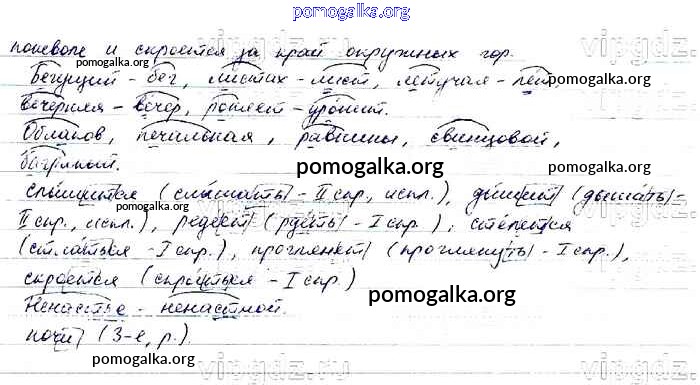 pomogalka.org
поневоле и скроется за край окружных гор.
pomogalka.org
vipgdz.ru
Бегущий - бег, листах - лист, летучая - лет,
pomogalka.org
вечерняя - вечер, роняет - уронит.
Облаков, печальная, равнины, свинцовой,
багряный.
pomogalka.org
слышится (слышать - II спр., искл.), дышит (дышать -
pomogalka.org
II спр., искл.), редеет (рдеть - I спр.), стелется
(стлаться - I спр.), проглянет (проглянуть - I спр.),
скроется (скрыться - I спр.)
pomogalka.org
Ненастье - ненастной.
почти (3-е, р.).
pomogalka.org
vipgdz.ru
vipgdz.ru